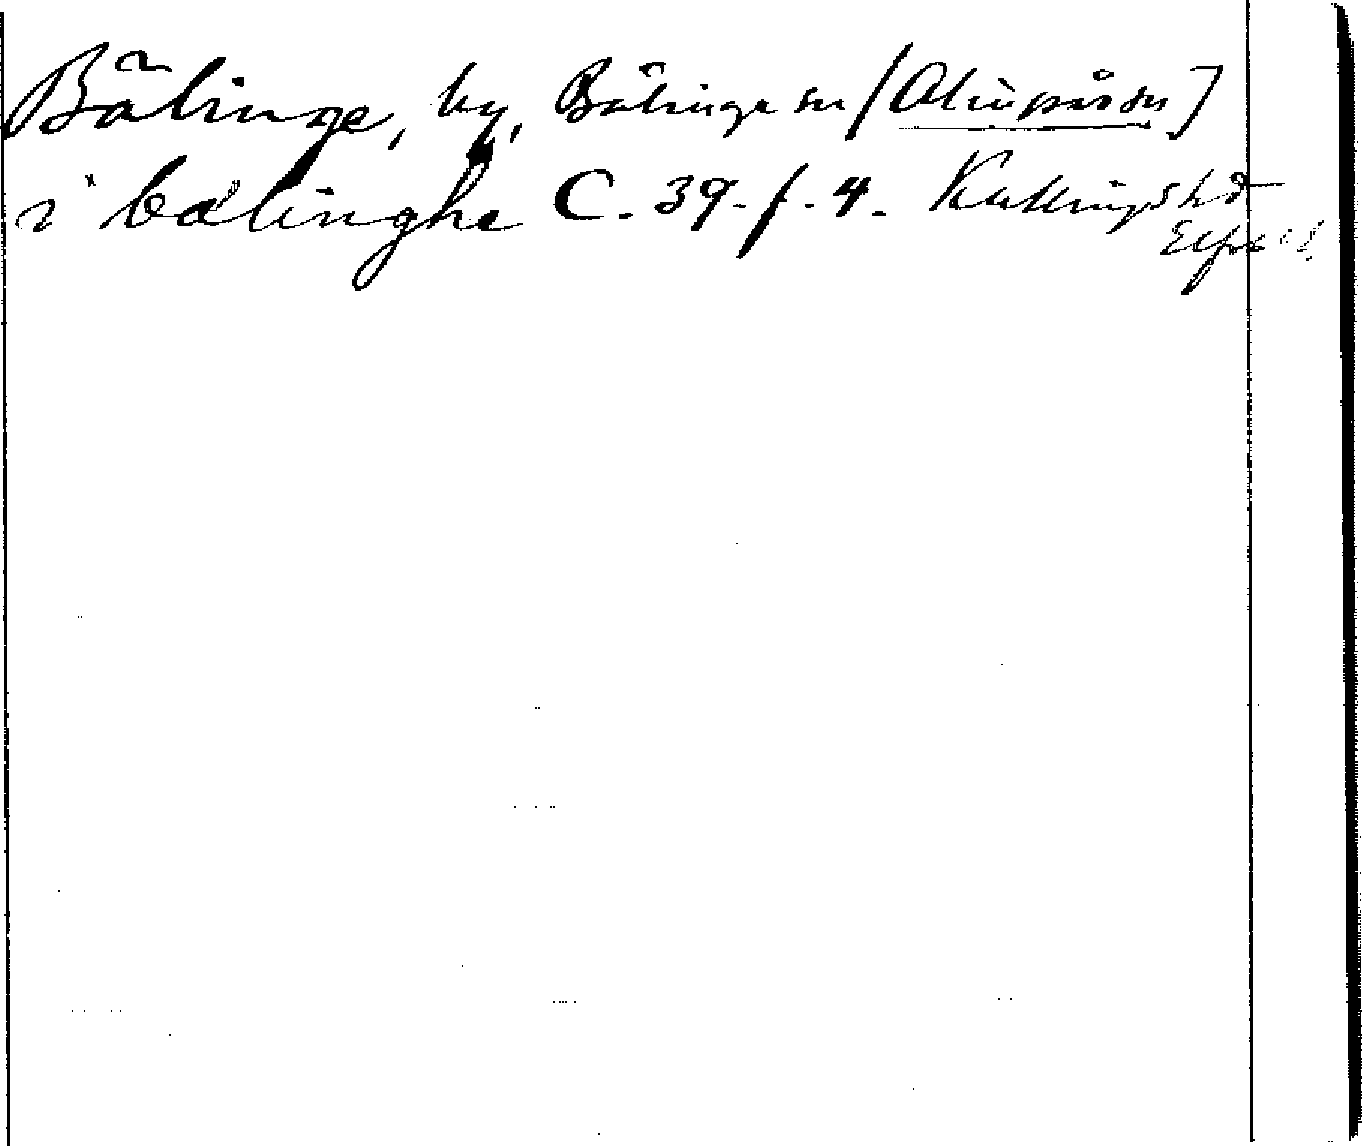 Bälinge, by, Bälinge sn [Alingsås sn]
i bælinghe C. 39. f. 4. Kullings hd
Elfsb. l.